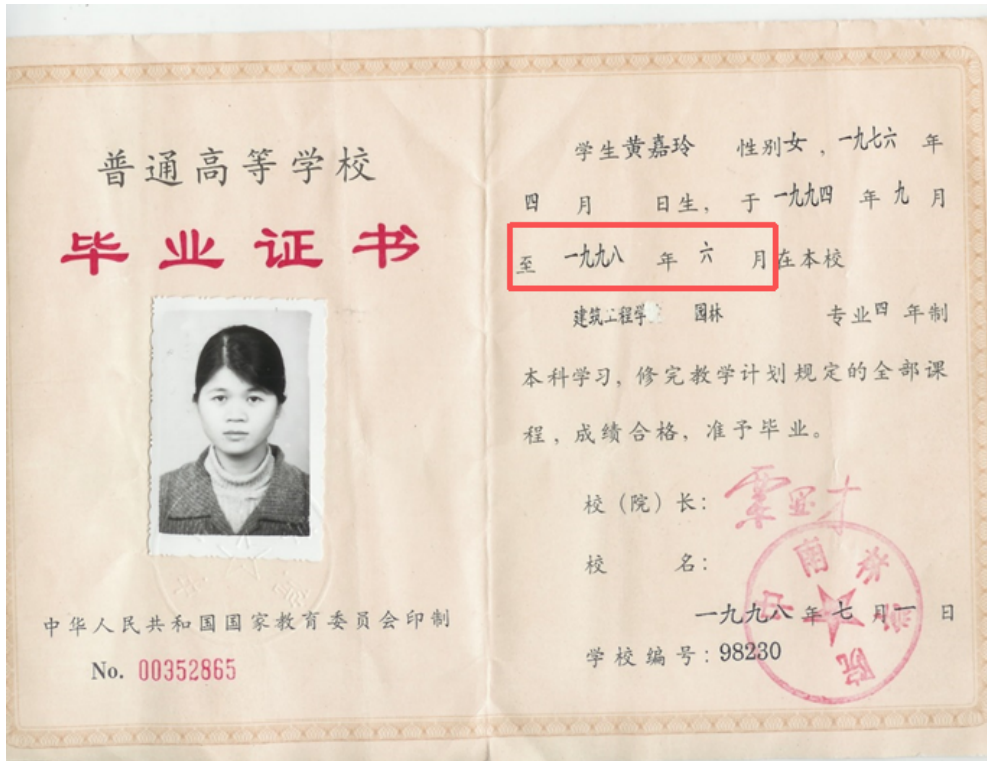 普通高等学校
毕业证书
中华人民共和国国家教育委员会印制
No. 00352865
学生黄嘉玲 性别女，一九七六 年
四 月 日生，于一九九四 年 九 月
至 一九九八 年 六 月在本校
建筑工程学院 园林 专业四 年制
本科学习，修完教学计划规定的全部课
程，成绩合格，准予毕业。
校（院）长：
校 名：
中南林学院
一九九八 年 七 月 一 日
学校编号：98230